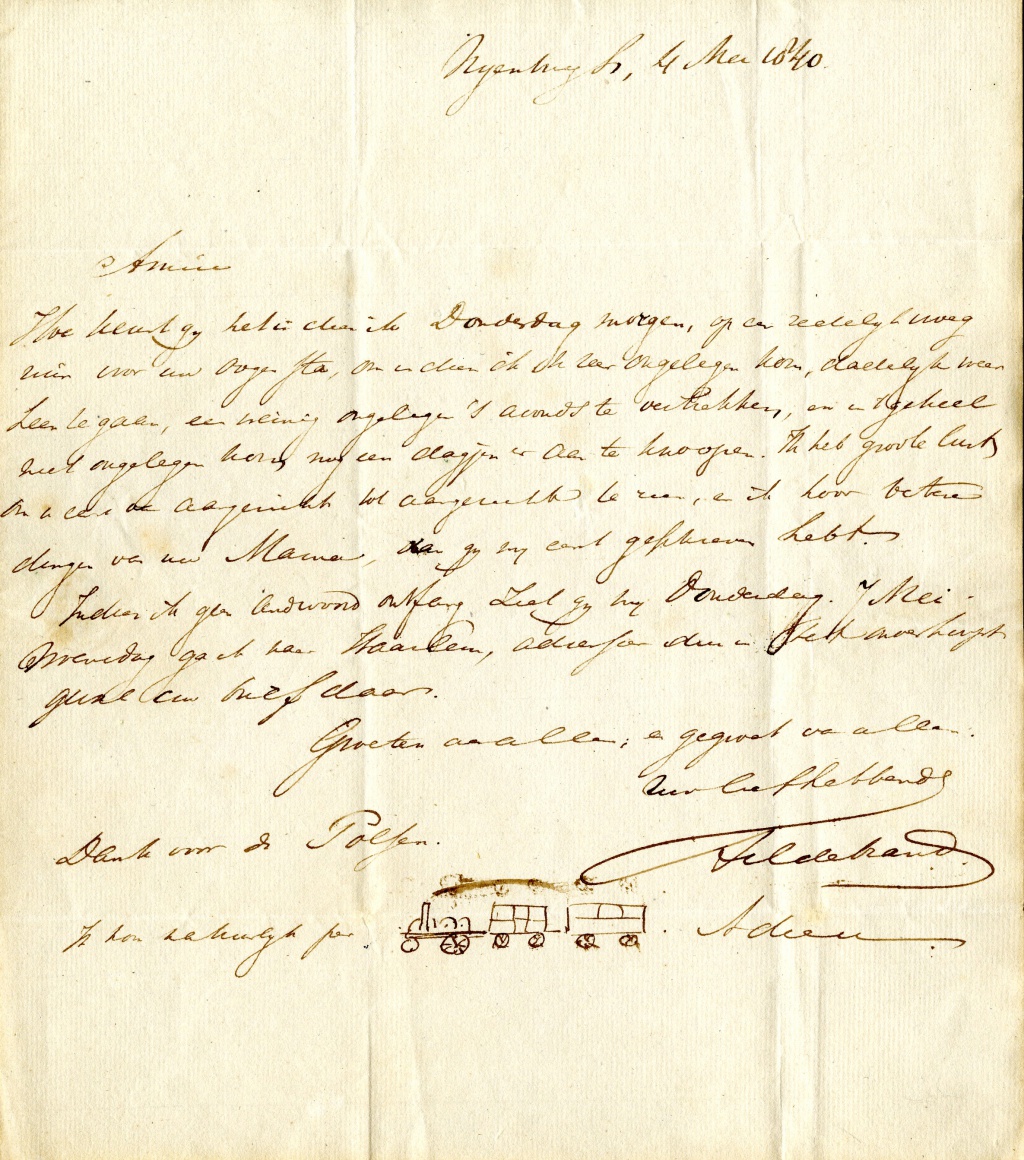 Nyenburg, 4 Mei 1840.
Amice
Hoe keurt gy het indien ik Donderdag morgen, op een redelyk vroeg
uur voor uw oogen sta, om indien ik zeer ongelegen kom, dadelyk weer
heen te gaan, een weinig ongelegen 's avonds te vertrekken, en in 't geheel
niet ongelegen kom, nog een dagjen er aan te knoopen. Ik heb groote lust
om u eens van aangezicht tot aangezicht te zien, en ik hoor betere
dingen van uw Mama, dan gy my eerst geschreven hebt.
Indien ik geen andwoord ontfang ziet gy my Donderdag. 7 Mei.
Woensdag ga ik naar Haarlem, adresseer dus in
uw brief daar.
Groeten aan allen; en gegroet van allen.
Uw liefhebbende
Hildebrand.
Dank voor de Polsen.
Ik kom natuurlyk per . Adieu